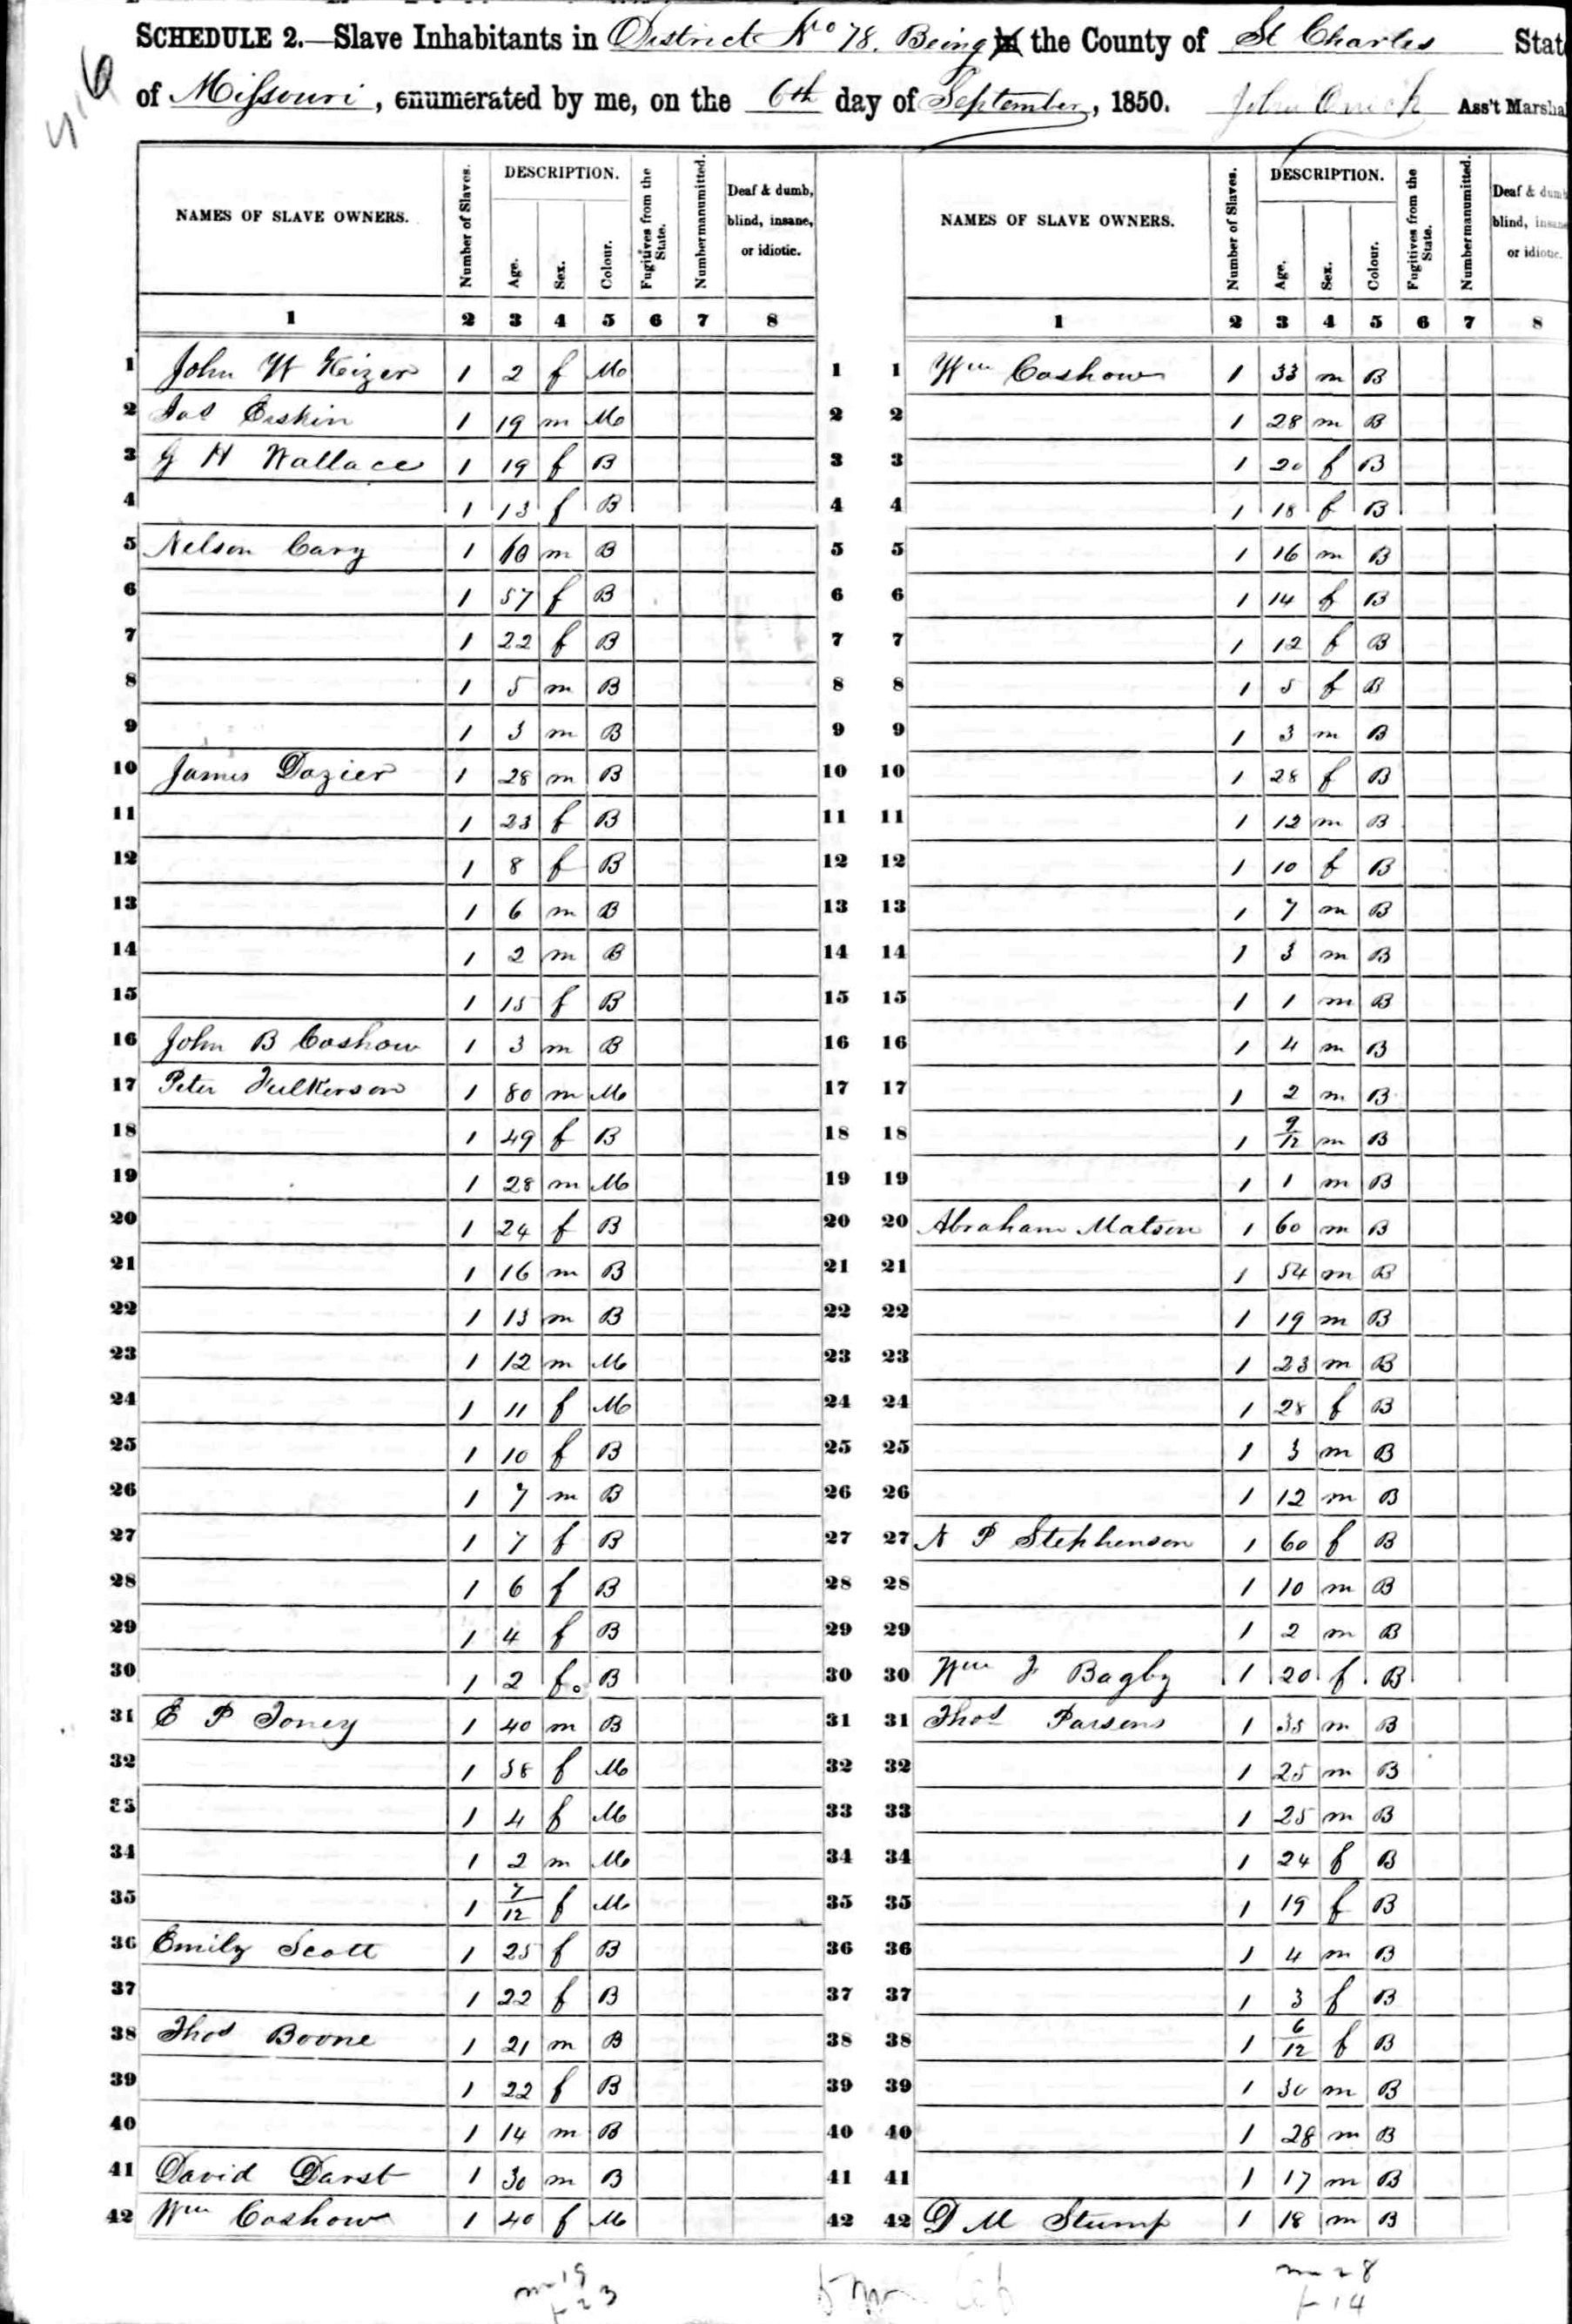 416
SCHEDULE 2.—Slave Inhabitants in District No 78. Being in the County of St Charles State
of Missouri, enumerated by me, on the 6th day of September, 1850. John Ass't Marshal
NAMES OF SLAVE OWNERS. Number of Slaves. DESCRIPTION. Age. Sex. Colour. Fugitives from the State. Number manumitted. Deaf & dumb, blind, insane, or idiotic.
NAMES OF SLAVE OWNERS. Number of Slaves. DESCRIPTION. Age. Sex. Colour. Fugitives from the State. Number manumitted. Deaf & dumb, blind, insane, or idiotic.
1 2 3 4 5 6 7 8 1 2 3 4 5 6 7 8
1 John W Keizer 1 2 f M 1 1 Wm Coshow 1 33 m B
2 Jas Erskin 1 19 m M 2 2 1 28 m B
3 G H Wallace 1 19 f B 3 3 1 20 f B
4 1 13 f B 4 4 1 18 f B
5 Nelson Cary 1 60 m B 5 5 1 16 m B
6 1 57 f B 6 6 1 14 f B
7 1 22 f B 7 7 1 12 f B
8 1 5 m B 8 8 1 5 f B
9 1 3 m B 9 9 1 3 m B
10 James Dozier 1 28 m B 10 10 1 28 f B
11 1 23 f B 11 11 1 12 m B
12 1 8 f B 12 12 1 10 f B
13 1 6 m B 13 13 1 7 m B
14 1 2 m B 14 14 1 3 m B
15 1 15 f B 15 15 1 1 m B
16 John B Coshow 1 3 m B 16 16 1 4 m B
17 Peter Fulkerson 1 80 m M 17 17 1 2 m B
18 1 49 f B 18 18 1 9/12 m B
19 1 28 m M 19 19 1 1 m B
20 1 24 f B 20 20 Abraham Matson 1 60 m B
21 1 16 m B 21 21 1 54 m B
22 1 13 m B 22 22 1 19 m B
23 1 12 m M 23 23 1 23 m B
24 1 11 f M 24 24 1 28 f B
25 1 10 f B 25 25 1 3 m B
26 1 7 m B 26 26 1 12 m B
27 1 7 f B 27 27 N P Stephenson 1 60 f B
28 1 6 f B 28 28 1 10 m B
29 1 4 f B 29 29 1 2 m B
30 1 2 f B 30 30 Wm F Bagby 1 20 f B
31 E P Toney 1 40 m B 31 31 Thos Parsons 1 35 m B
32 1 38 f M 32 32 1 25 m B
33 1 4 f M 33 33 1 25 m B
34 1 2 m M 34 34 1 24 f B
35 1 7/12 f M 35 35 1 19 f B
36 Emily Scott 1 25 f B 36 36 1 4 m B
37 1 22 f B 37 37 1 3 f B
38 Thos Boone 1 21 m B 38 38 1 6/12 f B
39 1 22 f B 39 39 1 30 m B
40 1 14 m B 40 40 1 28 m B
41 David Darst 1 30 m B 41 41 1 17 m B
42 Wm Coshow 1 40 f M 42 42 D M Stump 1 18 m B
m 19 m 28
f 23 f 14